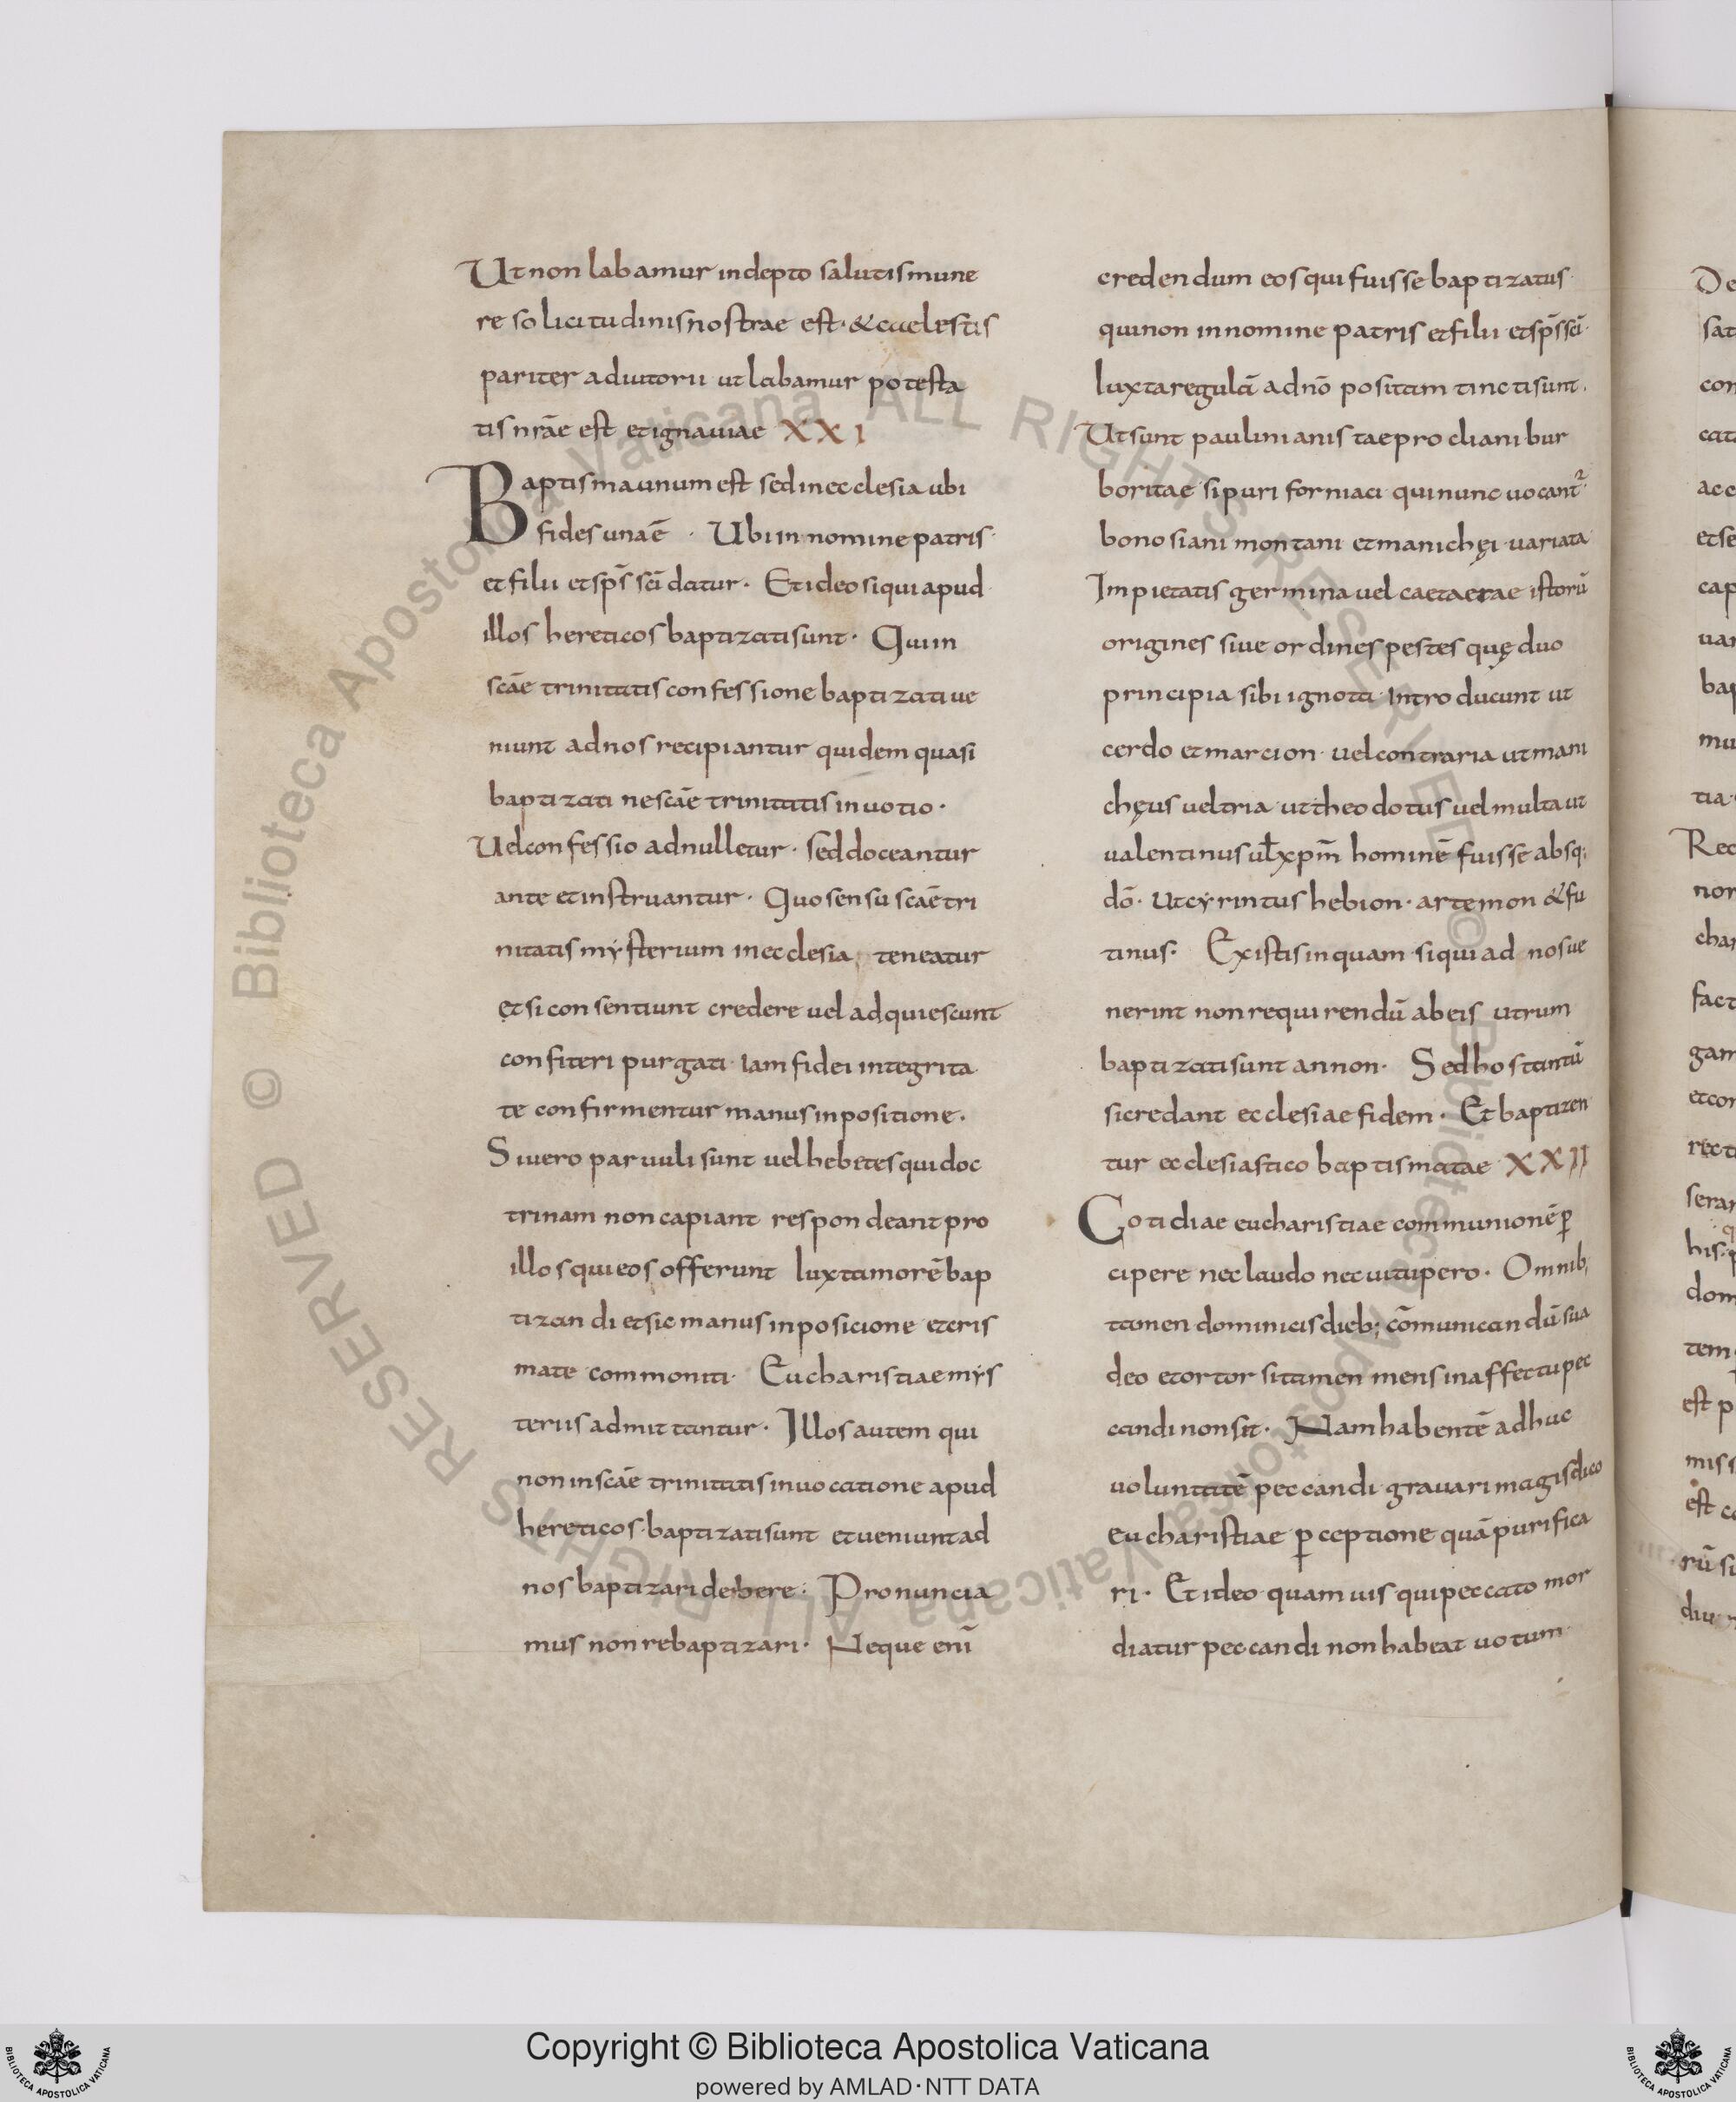 Ut non labamur indepto salutis mune
re solicitudinis nostrae est · & caelestis
pariter adiutorii ut labamur potesta
tis nrãe est et ignauiae XXI
Baptisma unum est sed in ecclesia ubi
fides una ẽ · Ubi in nomine patris ·
et filii et sp̃s sc̃i datur · Et ideo si qui apud
illos hereticos baptizati sunt · Qui in
scãe trinitatis confessione baptizati ue
niunt ad nos recipiantur quidem quasi
baptizati ne scãe trinitatis inuotio ·
Uel confessio adnulletur · sed doceantur
ante et instruantur · Quo sensu scaẽ tri
nitatis mẏsterium in ecclesia teneatur
et si consentiunt credere uel adquiescunt
confiteri purgati · iam fidei integrita
te confirmentur manus inpositione ·
Si uero paruuli sunt uel hebetes qui doc
trinam non capiant respondeant pro
illos qui eos offerunt Iuxta morẽ bap
tizandi et sic manus inposicione et cris
mate commoniti · Eucharistiae mẏs
teriis admittantur · Illos autem qui
non in scãe trinitatis inuocatione apud
hereticos · baptizati sunt et ueniunt ad
nos baptizari debere · Pronuncia
mus non rebaptizari · Neque enĩ
credendum eos qui fuisse baptizatus ·
qui non in nomine patris et filii et sp̃s sc̃i ·
Iuxta regulã a dnõ positam tincti sunt ·
Ut sunt paulinianistae procliani bur
boritae sipuri forniaci qui nunc uocant᷑
bonosiani montani et manichęi · uariata
Impietatis germina uel caetaerae istorũ
origines siue ordines pestes quę duo
principia sibi ignota introducunt ut
cerdo et marcion · uel contraria ut mani
chęus uel tria · ut theodotus uel multa ut
ualentinus uł xpm̃ hominẽ fuisse absq;
dõ · ut cẏrintus hebion · artemon & fu
tinus · Ex istis inquam · si qui ad nos ue
nerint non requirendũ ab eis utrum
baptizati sunt an non · Sed hos tantũ
si credant ecclesiae fidem · Et baptizen
tur ecclesiastico baptismatae XXII
Cotidiae eucharistiae communionẽ ꝑ
cipere nec laudo nec uitupero · Omnib;
tamen dominicis dieb; cõmunicandũ sua
deo et ortor si tamen mens in affectu pec
candi non sit · Nam habentẽ adhuc
uoluntatẽ peccandi · grauari magis dico
eucharistiae ꝑceptione quã purifica
ri · Et ideo quam uis qui peccato mor
diatur peccandi non habeat uotum ·